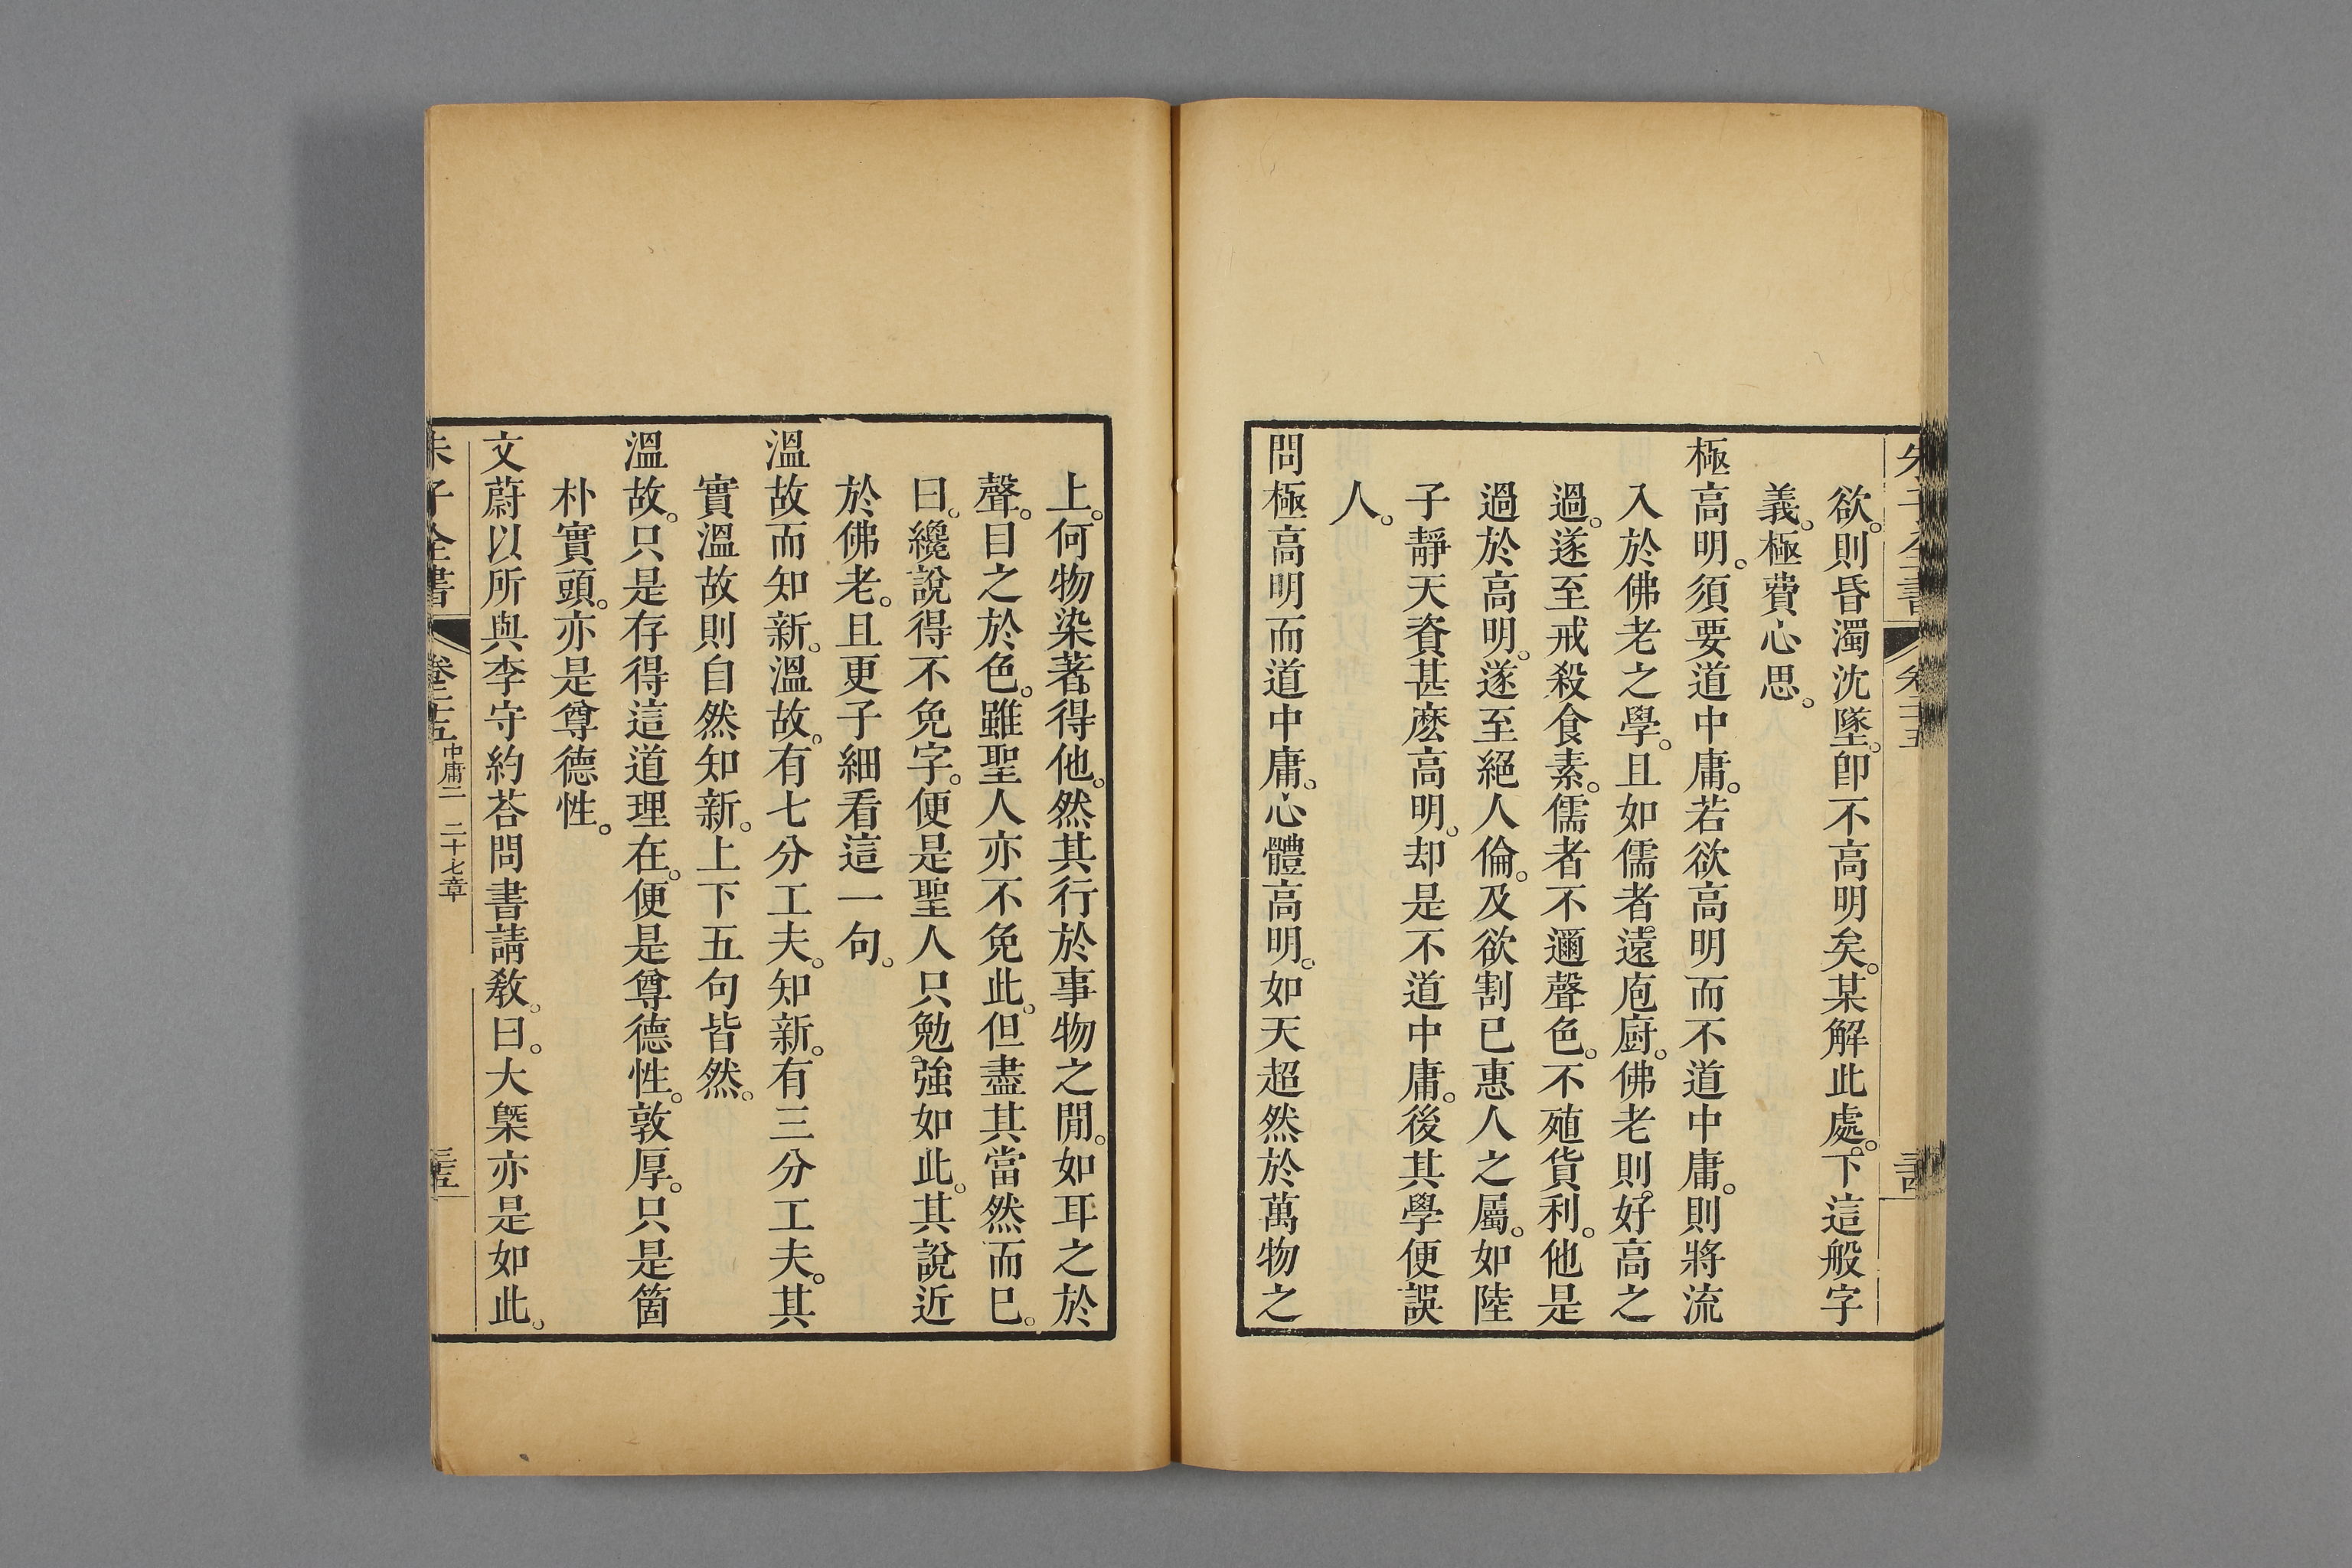 朱子全書 卷二十五
欲。則昏濁沈墜。卽不高明矣。某解此處。下這般字
義。極費心思。
極高明。須要道中庸。若欲高明而不道中庸。則將流
入於佛老之學。且如儒者。遠庖廚。佛老則好高之
過。遂至戒殺食素。儒者不邇聲色。不殖貨利。他是
過於高明。遂至絕人倫。及欲割已惠人之屬。如陸
子靜天資甚麽高明。却是不道中庸。後其學便誤
人。
問極高明而道中庸。心體高明。如天超然於萬物之
上。何物染著得他。然其行於事物之閒。如耳之於
聲。目之於色。雖聖人亦不免此。但盡其當然而已。
曰。纔說得不免字。便是聖人只勉強如此。其說近
於佛老。且更子細看這一句。
溫故而知新。溫故。有七分工夫。知新。有三分工夫。其
實溫故則自然知新。上下五句皆然。
溫故。只是存得這道理在。便是尊德性。敦厚。只是箇
朴實頭。亦是尊德性。
文蔚以所與李守約荅問書請敎。曰。大槩亦是如此。
朱子全書 卷二十五 中庸二 二十七章